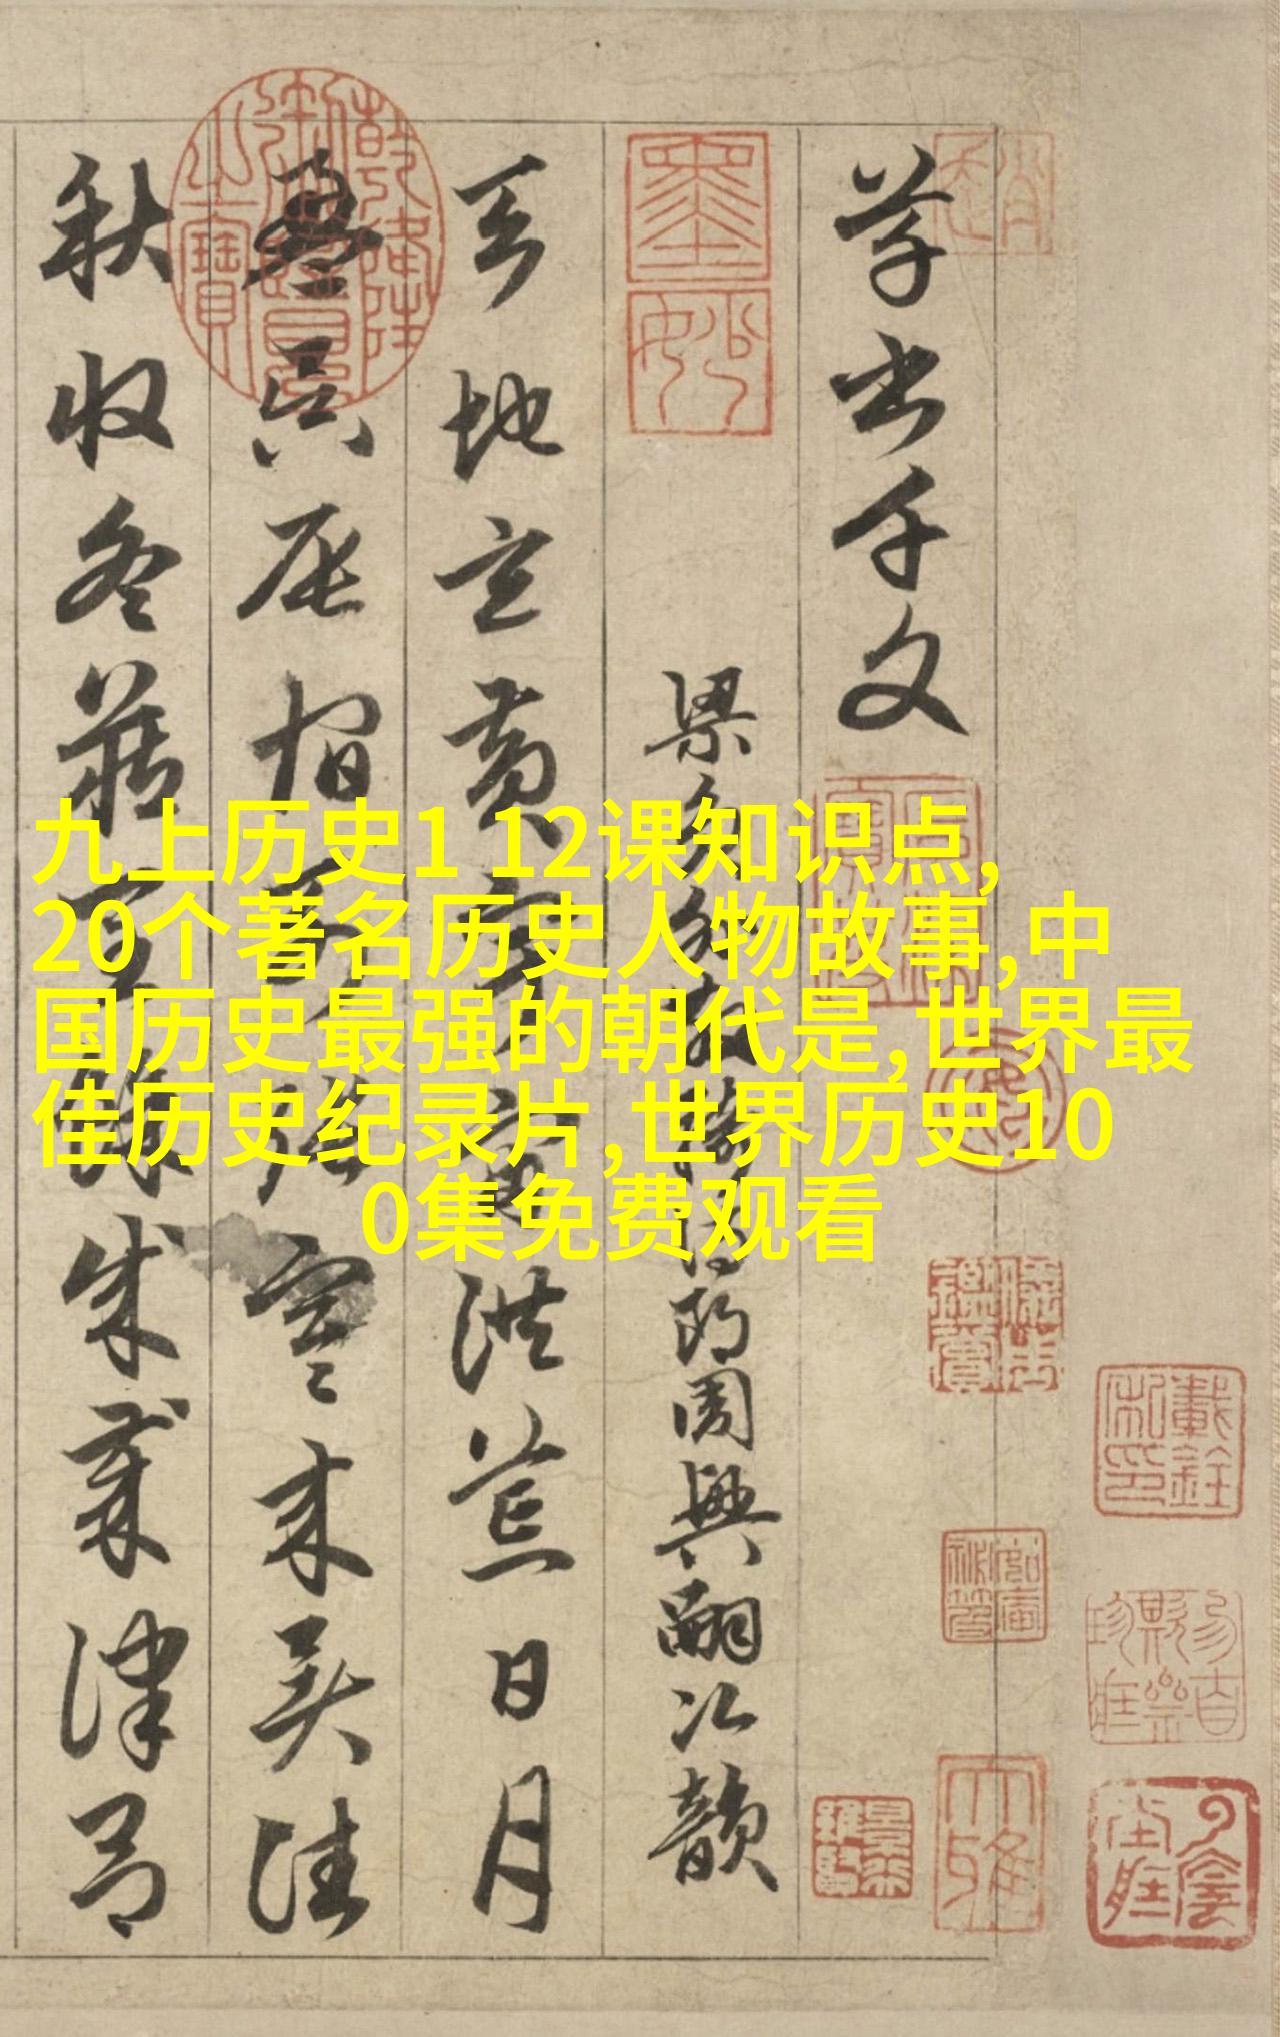 九上历史1 12课知识点,
20个著名历史人物故事,中
国历史最强的朝代是,世界最
佳历史纪录片,世界历史10
0集免费观看
草书千文
梁員外散騎侍郎周興嗣次韻
天地玄黃宇宙洪荒日月
盈昃辰宿列張寒来暑往
秋收冬藏閏餘成歲律吕
墨妙
乾隆御覽之寶
大雅